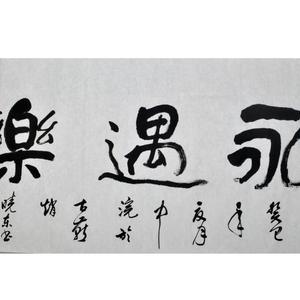 永遇樂
癸巳年夏月中浣於古燕
曉東书